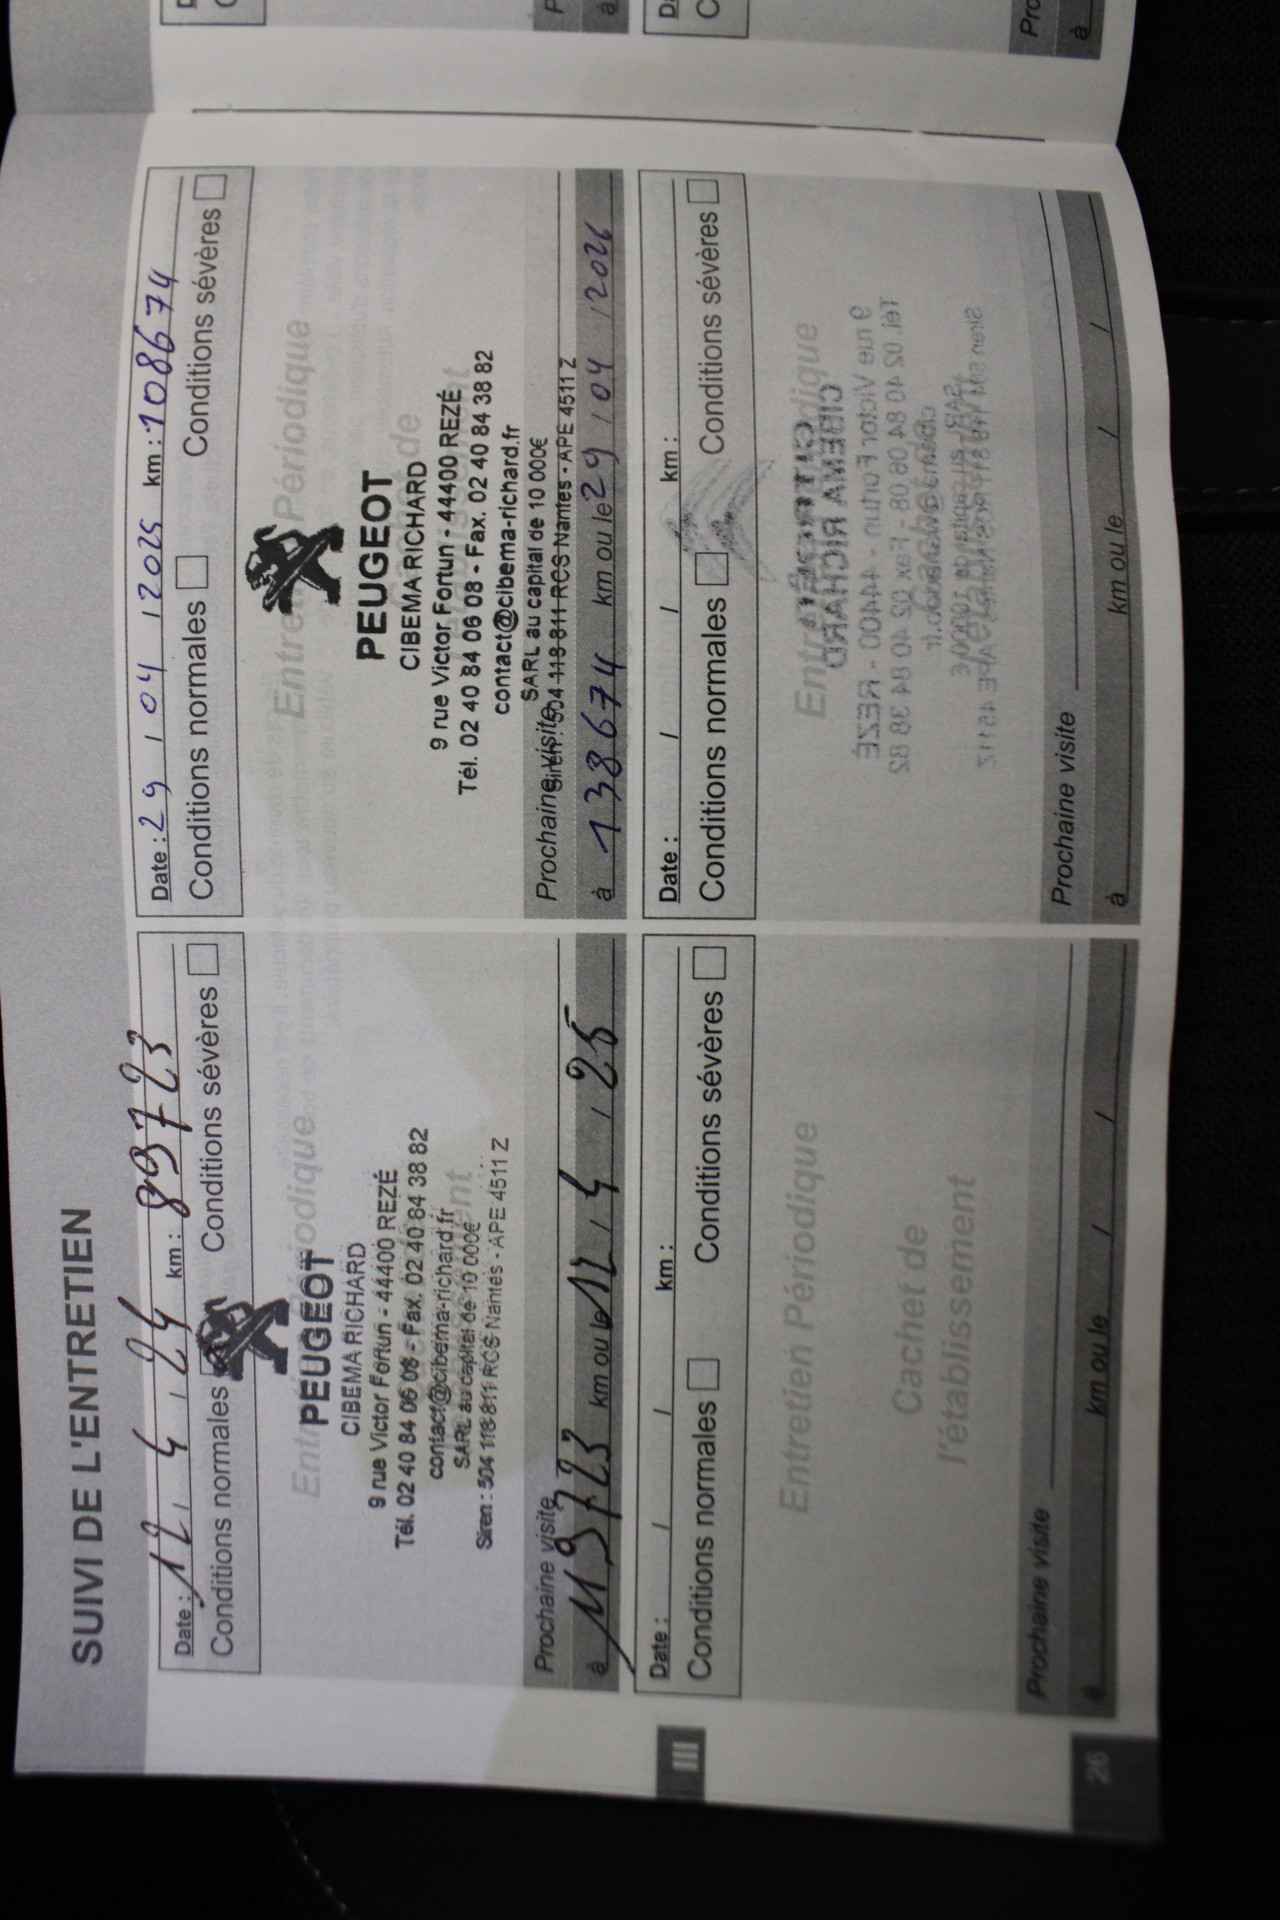 SUIVI DE L'ENTRETIEN
Date : 12 / 4 / 24 km : 89723
Conditions normales Conditions sévères
Entretien Périodique
PEUGEOT
CIBEMA RICHARD
9 rue Victor Fortun - 44400 REZÉ
Tél. 02 40 84 06 08 - Fax. 02 40 84 38 82
contact@cibema-richard.fr
SARL au capital de 10 000€
Siren : 504 118 811 RCS Nantes - APE 4511 Z
Prochaine visite
à 119723 km ou le 12 / 4 / 25
Date : 29 / 04 / 2025 km : 108674
Conditions normales Conditions sévères
Entretien Périodique
PEUGEOT
CIBEMA RICHARD
9 rue Victor Fortun - 44400 REZÉ
Tél. 02 40 84 06 08 - Fax. 02 40 84 38 82
contact@cibema-richard.fr
SARL au capital de 10 000€
Siren : 504 118 811 RCS Nantes - APE 4511 Z
Prochaine visite
à 138674 km ou le 29 / 04 / 2026
III
Date : / / km :
Conditions normales Conditions sévères
Entretien Périodique
Cachet de
l'établissement
Prochaine visite
à km ou le / /
Date : / / km :
Conditions normales Conditions sévères
Entretien Périodique
Prochaine visite
à km ou le / /
26